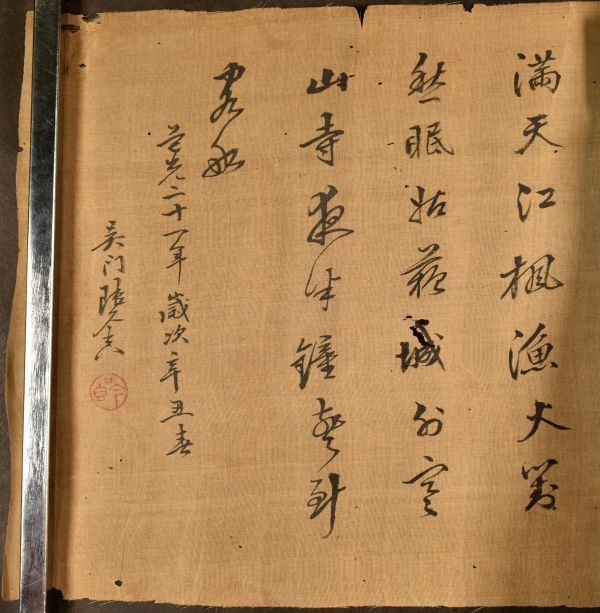 满天江楓漁火對
愁眠姑蘇城外寒
山寺夜半鐘聲到
客船
道光二十一年歲次辛丑春
吴门